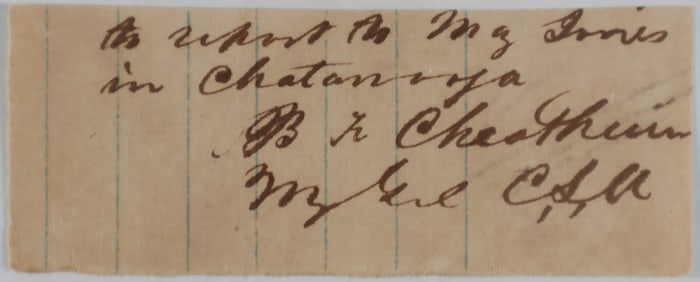 to report to Maj Jones
in Chatanooga
B F Cheatham
Maj Genl C,S,A